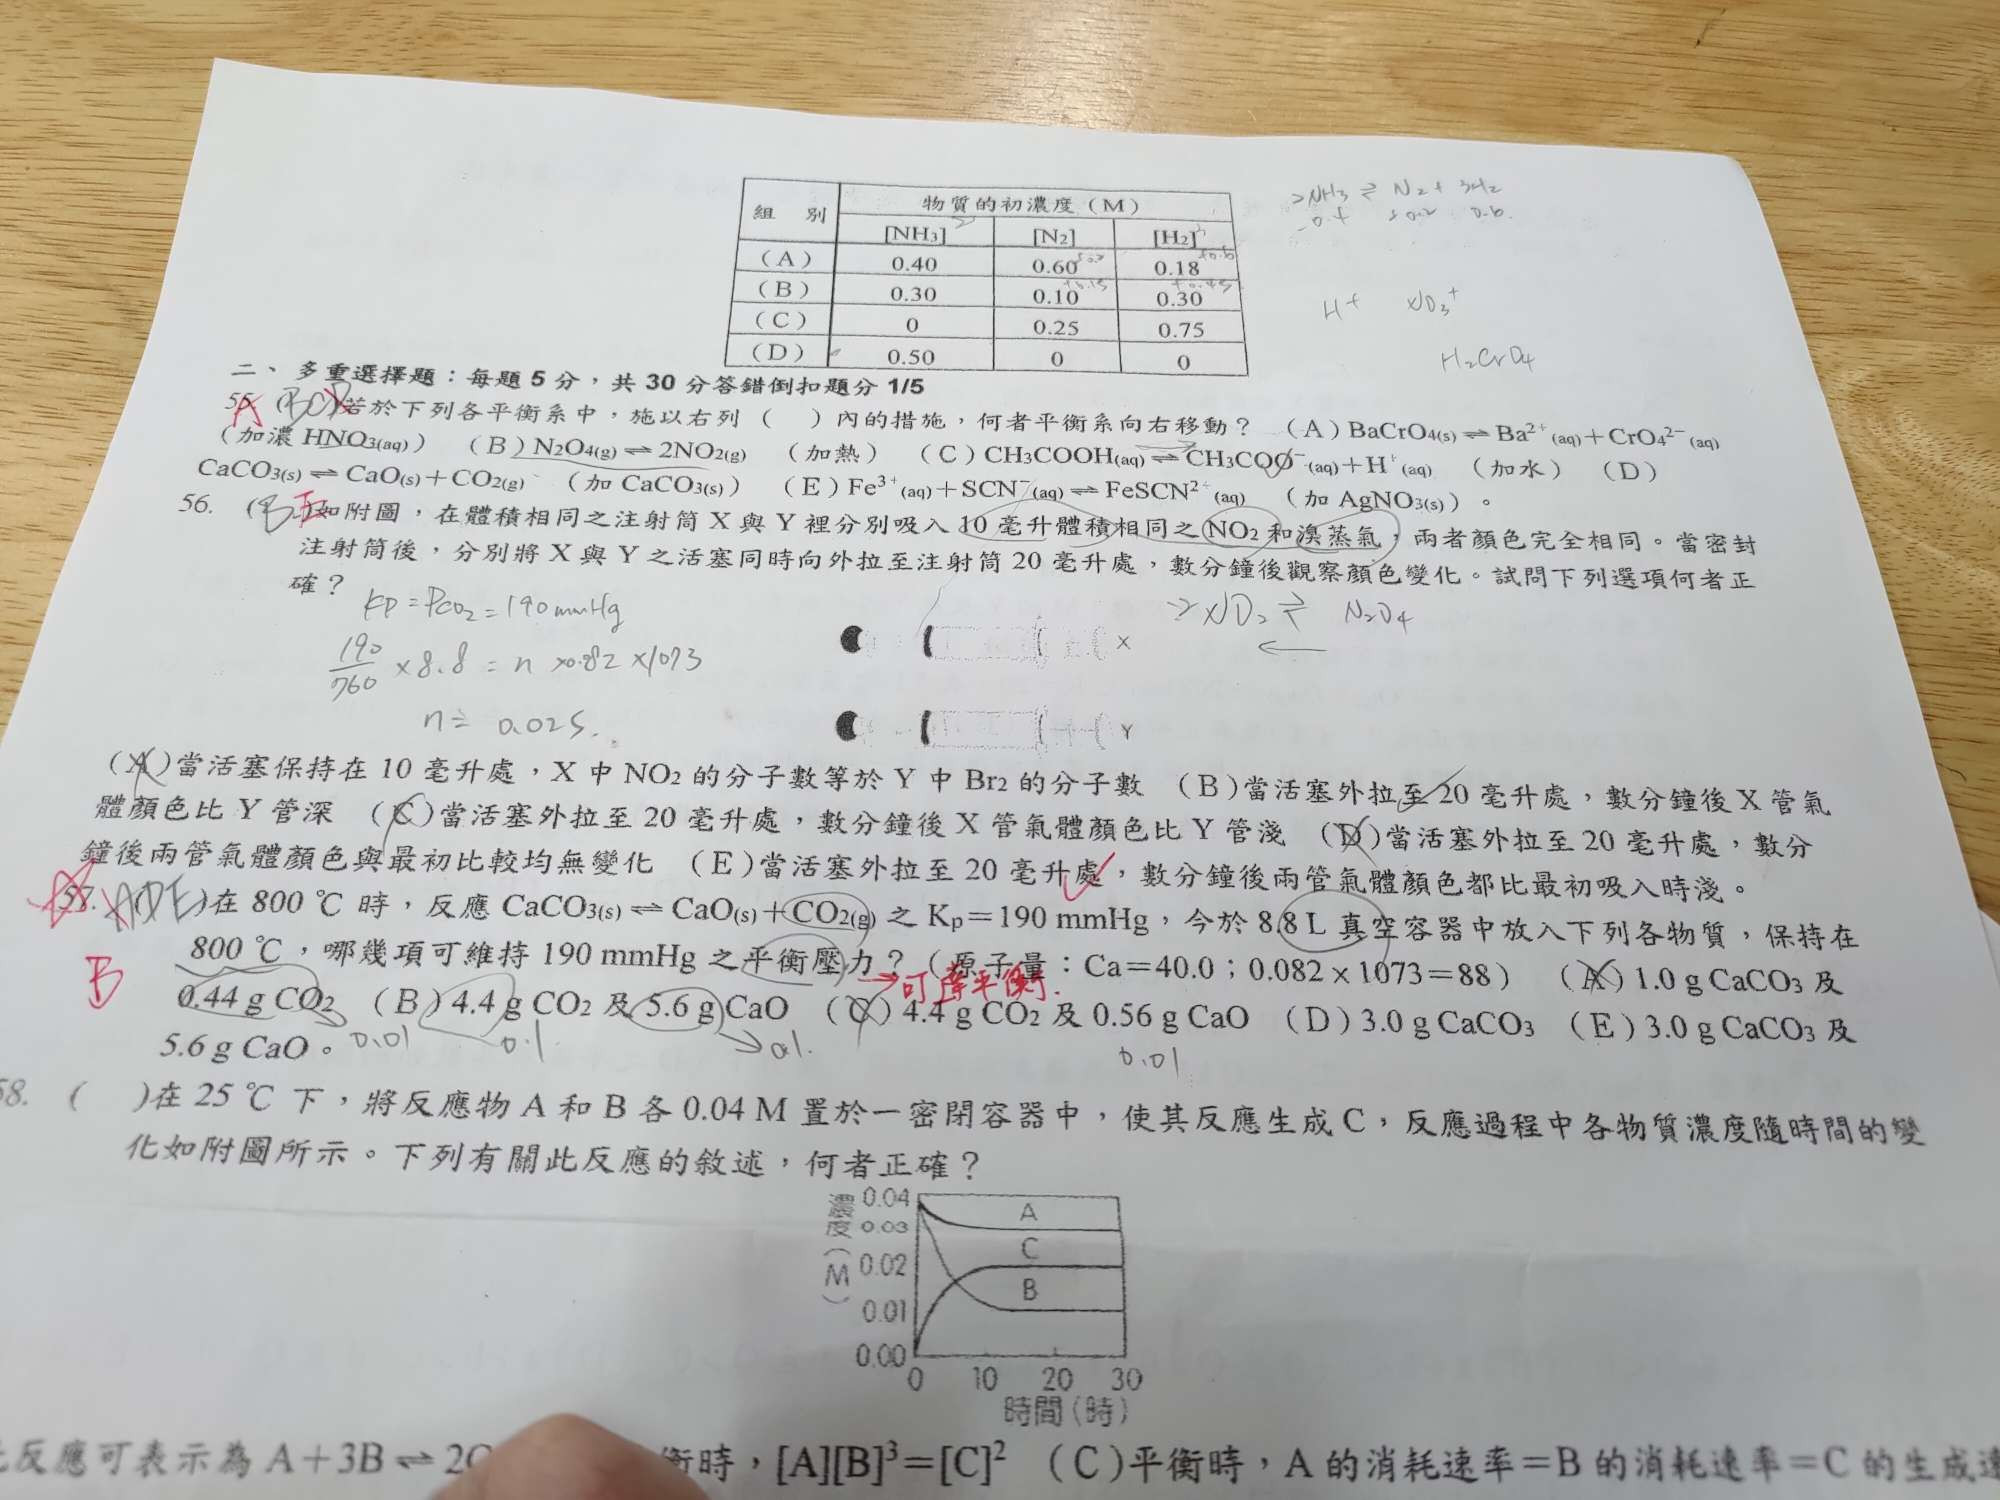 組 別 物質的初濃度(M)
[NH3] [N2] [H2]
(A) 0.40 0.60 0.18
(B) 0.30 0.10 0.30
(C) 0 0.25 0.75
(D) 0.50 0 0
2NH3 ⇌ N2 + 3H2
H+
H2CrO4
二、多重選擇題:每題 5 分,共 30 分答錯倒扣題分 1/5
55. ( )若於下列各平衡系中,施以右列( )內的措施,何者平衡系向右移動? (A)BaCrO4(s)⇌Ba2+(aq)+CrO42-(aq)
(加濃 HNO3(aq)) (B)N2O4(g)⇌2NO2(g) (加熱) (C)CH3COOH(aq)⇌CH3COO-(aq)+H+(aq) (加水) (D)
CaCO3(s)⇌CaO(s)+CO2(g) (加 CaCO3(s)) (E)Fe3+(aq)+SCN-(aq)⇌FeSCN2+(aq) (加 AgNO3(s))。
56. ( )如附圖,在體積相同之注射筒 X 與 Y 裡分別吸入 10 毫升體積相同之 NO2 和溴蒸氣,兩者顏色完全相同。當密封
注射筒後,分別將 X 與 Y 之活塞同時向外拉至注射筒 20 毫升處,數分鐘後觀察顏色變化。試問下列選項何者正
確?
KP = PCO2 = 190 mmHg
2NO2 ⇌ N2O4
190/760 × 8.8 = n × 0.82 × 1073
n ≒ 0.025
X
Y
(A)當活塞保持在 10 毫升處,X 中 NO2 的分子數等於 Y 中 Br2 的分子數 (B)當活塞外拉至 20 毫升處,數分鐘後 X 管氣
體顏色比 Y 管深 (C)當活塞外拉至 20 毫升處,數分鐘後 X 管氣體顏色比 Y 管淺 (D)當活塞外拉至 20 毫升處,數分
鐘後兩管氣體顏色與最初比較均無變化 (E)當活塞外拉至 20 毫升處,數分鐘後兩管氣體顏色都比最初吸入時淺。
57. (ADE)在 800 ℃ 時,反應 CaCO3(s)⇌CaO(s)+CO2(g) 之 Kp=190 mmHg,今於 8.8 L 真空容器中放入下列各物質,保持在
800 ℃,哪幾項可維持 190 mmHg 之平衡壓力?(原子量:Ca=40.0;0.082×1073=88) (A)1.0 g CaCO3 及
B
→可達平衡.
0.44 g CO2 (B)4.4 g CO2 及 5.6 g CaO (C)4.4 g CO2 及 0.56 g CaO (D)3.0 g CaCO3 (E)3.0 g CaCO3 及
5.6 g CaO。
0.01 0.1 0.1. 0.01
58. ( )在 25 ℃ 下,將反應物 A 和 B 各 0.04 M 置於一密閉容器中,使其反應生成 C,反應過程中各物質濃度隨時間的變
化如附圖所示。下列有關此反應的敘述,何者正確?
濃度(M)
0.04
0.03
0.02
0.01
0.00
A
C
B
0 10 20 30
時間(時)
反應可表示為 A+3B⇌2C 衡時,[A][B]3=[C]2 (C)平衡時,A 的消耗速率=B 的消耗速率=C 的生成速